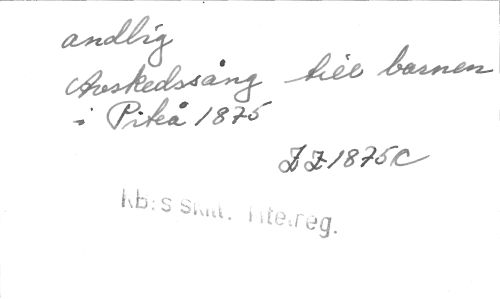 andlig
Avskedssång till barnen
i Piteå 1875
ZZ 1875 C
kb:s skill. Titelreg.